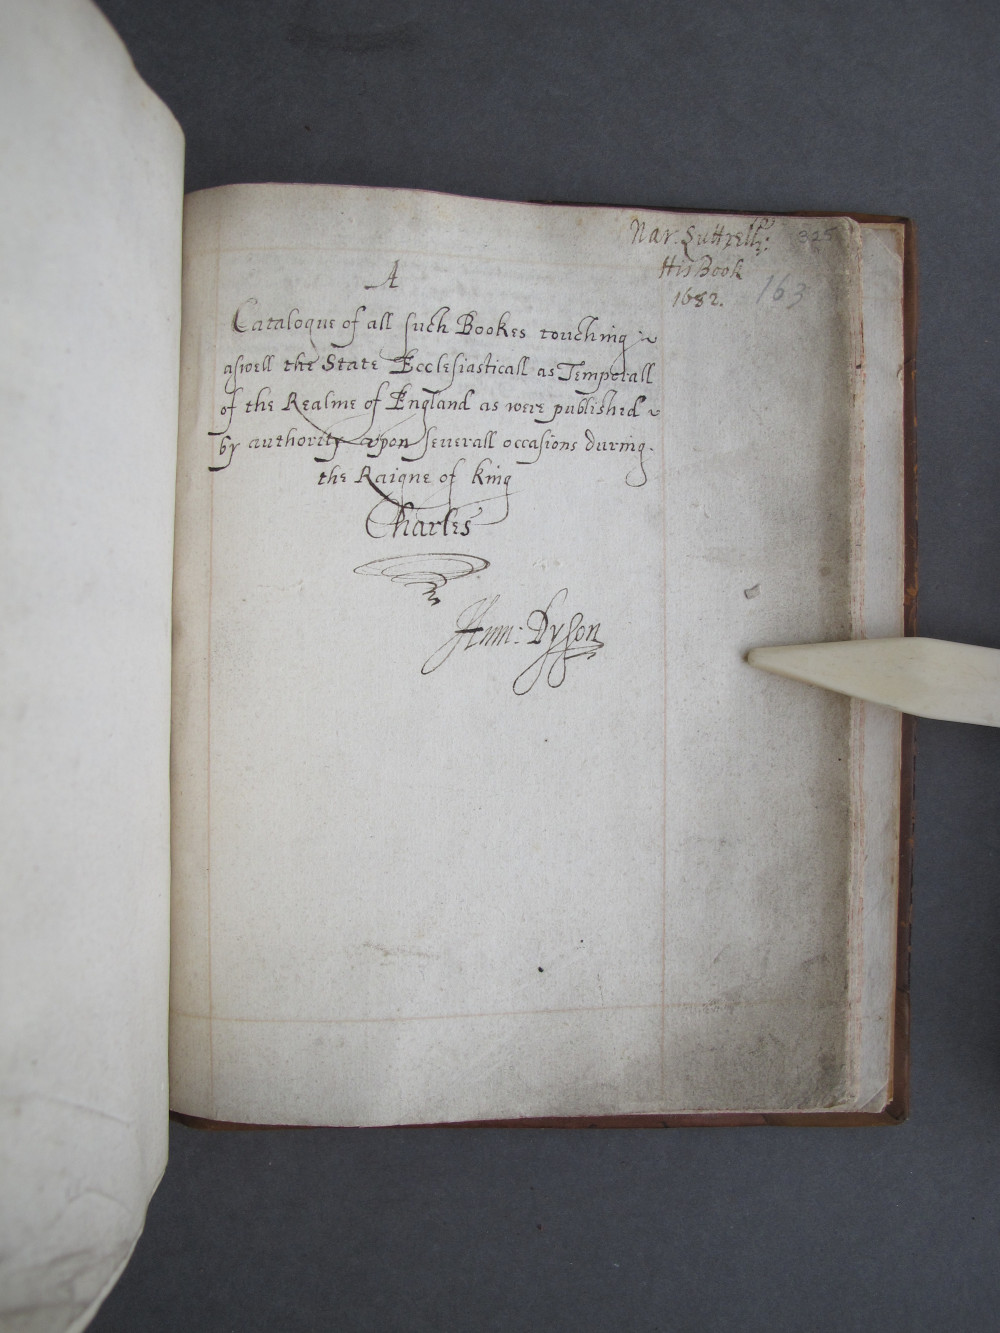 Nar: Luttrell:
His Book
1682.
325
163
A
Catalogue of all such Bookes touching
aswell the State Ecclesiasticall as Temporall
of the Realme of England as were published
by authority upon severall occasions during
the Raigne of King
Charles
Hum: Dyson